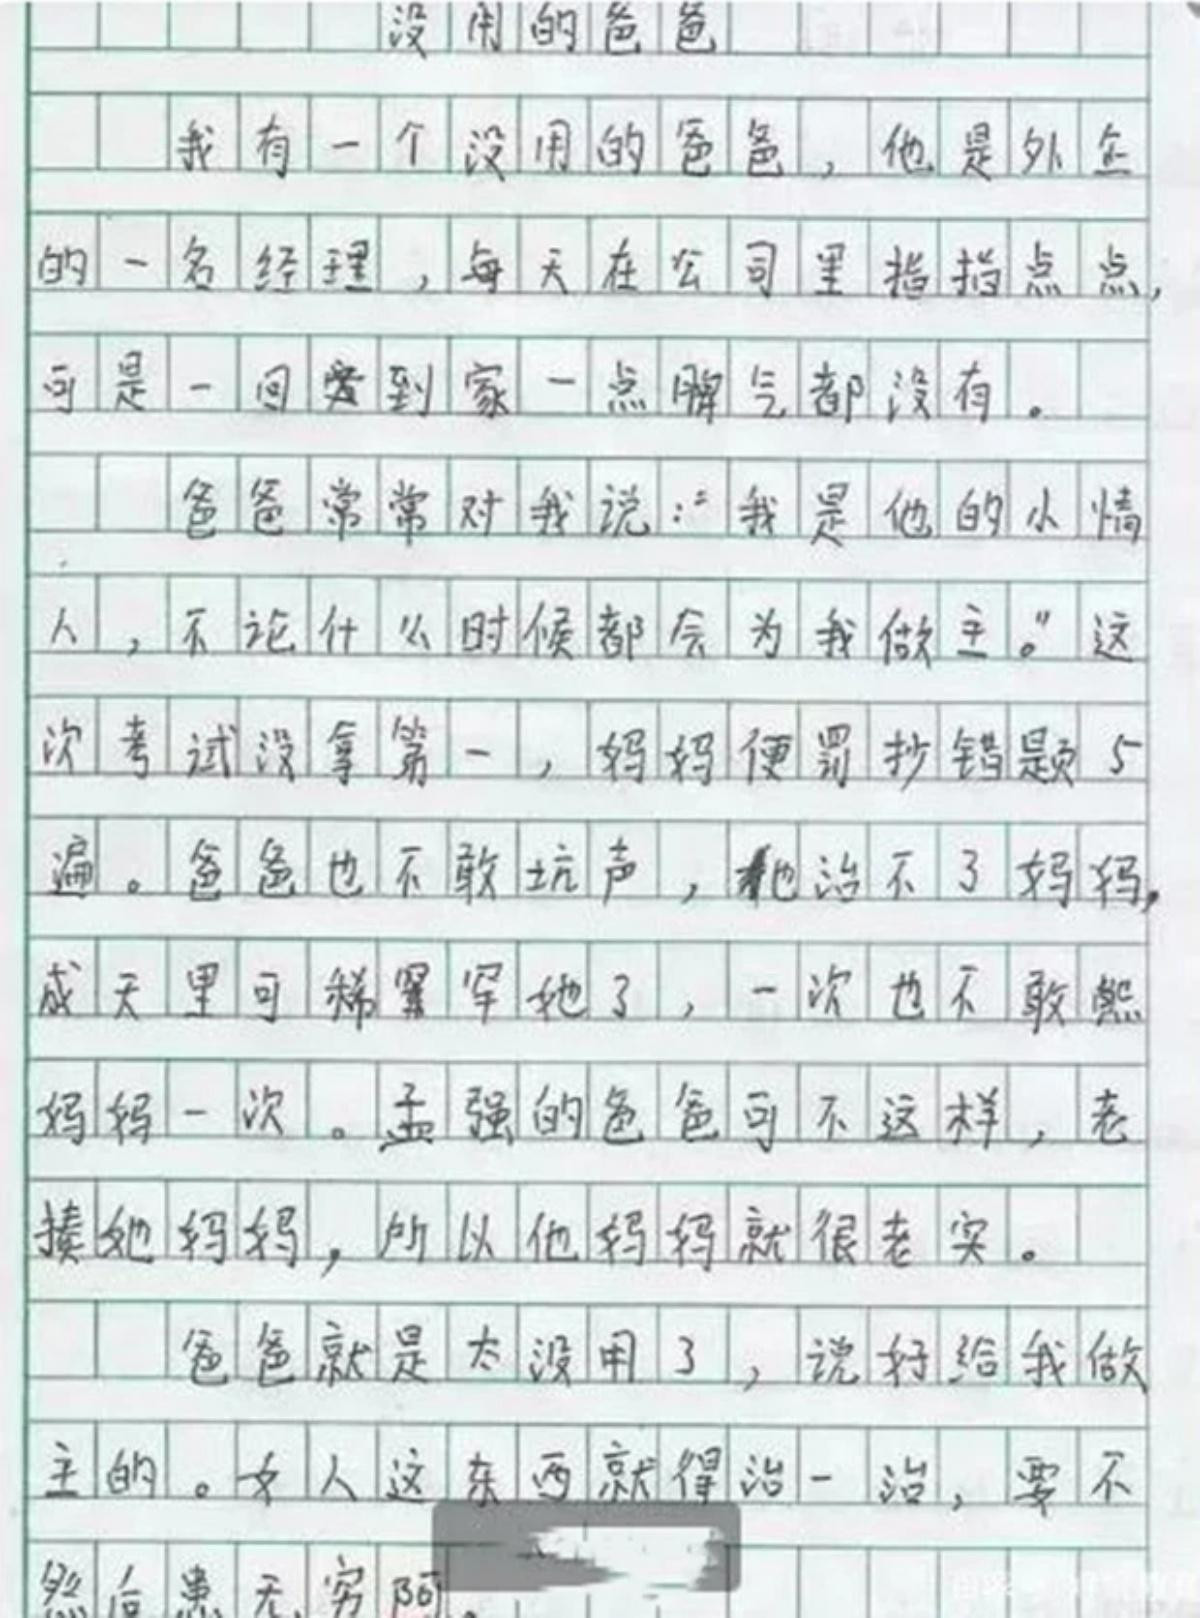 没用的爸爸
我有一个没用的爸爸，他是外企
的一名经理，每天在公司里指指点点，
可是一回到家一点脾气都没有。
爸爸常常对我说：“我是他的小情
人，不论什么时候都会为我做主。”这
次考试没拿第一，妈妈便罚抄错题5
遍。爸爸也不敢坑声，他治不了妈妈，
成天里可稀罕她了，一次也不敢熊
妈妈一次。孟强的爸爸可不这样，老
揍她妈妈，所以他妈妈就很老实。
爸爸就是太没用了，说好给我做
主的。女人这东西就得治一治，要不
然后患无穷啊。